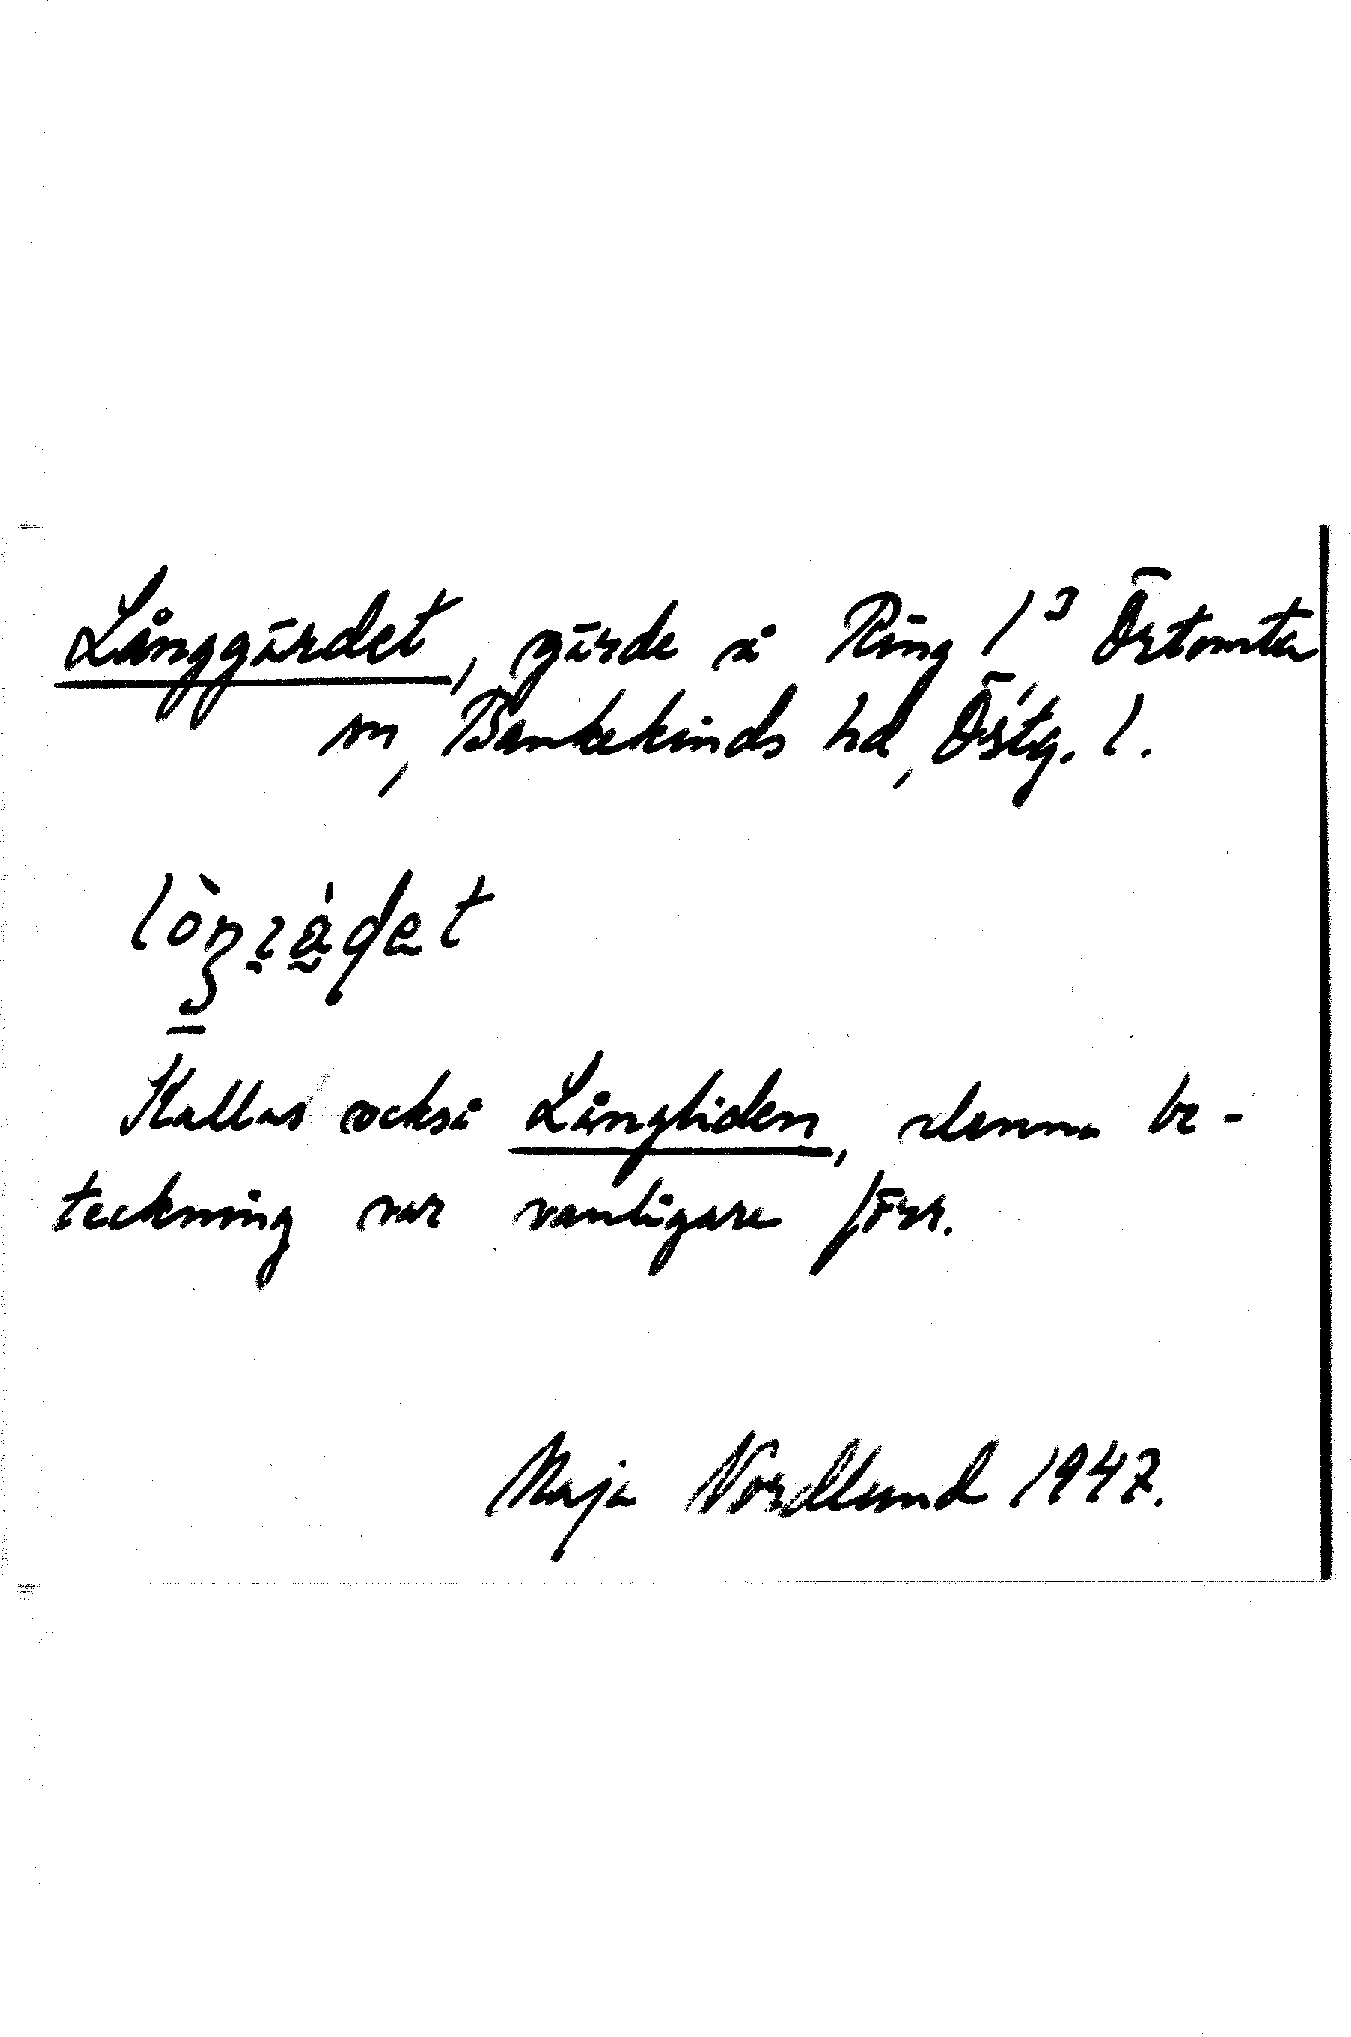 Långgärdet, gärde å Ring 1³ Örtomta
sn, Bankekinds hd, Östg. l.
Kallas också Langliden, denna be-
teckning var vanligare förr.
Maja Nordlund 1947.